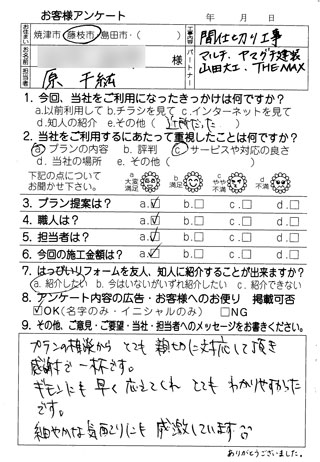 お客様アンケート 年 月 日
お住まい 焼津市・藤枝市・島田市・( ) 工事内容 間仕切り工事
お名前 様 パートナー マルチ、ヤマダ建装
担当者 原 千紘 山田大工、THEMAX
1. 今回、当社をご利用になったきっかけは何ですか?
a.以前利用して b.チラシを見て c.インターネットを見て
d.知人の紹介 e.その他( 近所だった )
2. 当社をご利用するにあたって重視したことは何ですか?
a. プランの内容 b. 評判 c. サービスや対応の良さ
d. 当社の場所 e. その他( )
下記の点について
お聞かせ下さい。
a 大変満足 b 満足 c やや不満 d 不満
3. プラン提案は? a.☑ b.□ c.□ d.□
4. 職人は? a.☑ b.□ c.□ d.□
5. 担当者は? a.☑ b.□ c.□ d.□
6. 今回の施工金額は? a.☑ b.□ c.□ d.□
7. はっぴいリフォームを友人、知人に紹介することが出来ますか?
a. 紹介したい b. 今はいないがいずれ紹介したい c. 紹介できない
8. アンケート内容の広告・お客様へのお便り 掲載可否
☑OK(名字のみ・イニシャルのみ) □NG
9. その他、ご意見・ご要望・当社・担当者へのメッセージをお書きください。
プランの相談から とても 親切に対応して頂き
感謝で一杯です。
ギモンにも 早く 応えてくれ とても わかりやすかった
です。
細やかな気配りにも 感激しています
ありがとうございました。